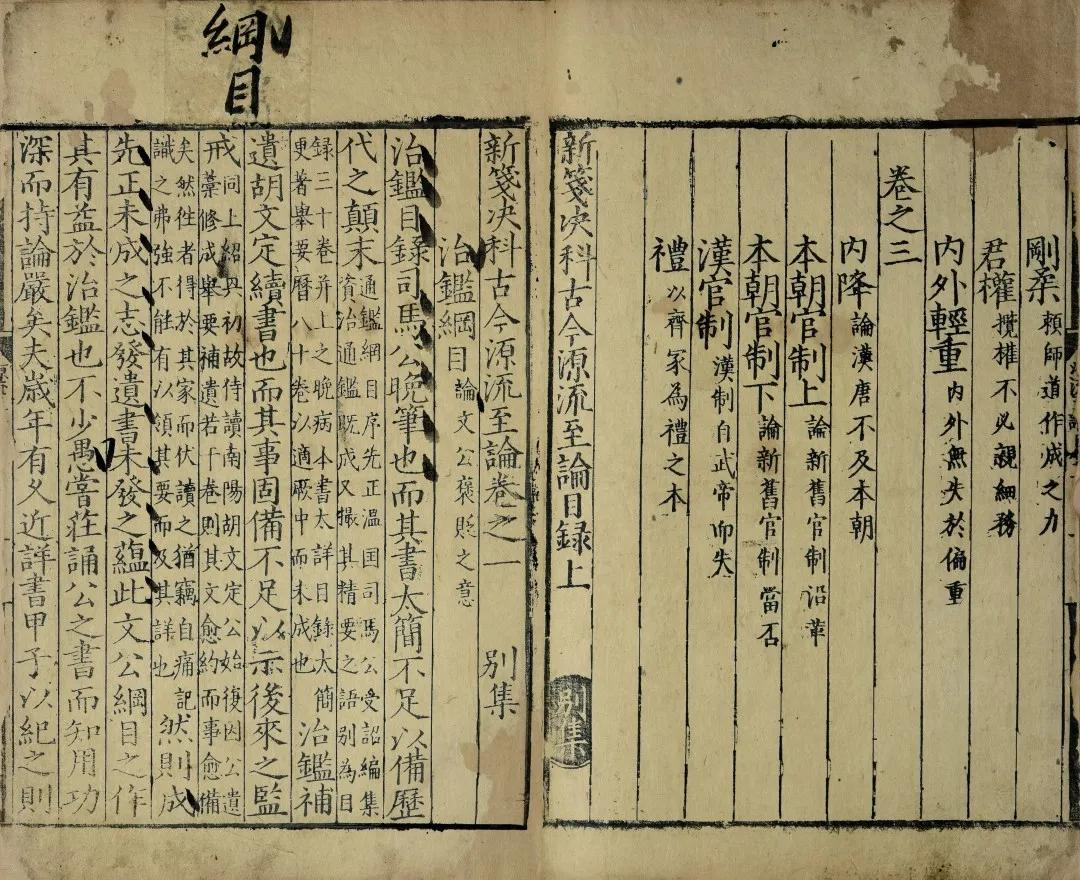 剛柔 賴師道作成之力
君權 攬權不必親細務
内外輕重 内外無失於偏重
卷之三
内降 論漢唐不及本朝
本朝官制上 論新舊官制沿革
本朝官制下 論新舊官制當否
漢官制 漢制自武帝而失
禮 以齊家為禮之本
新箋决科古今源流至論目録上 别集
綱目
新箋决科古今源流至論卷之一 别集
治鑑綱目 論文公褒貶之意
治鑑目錄司馬公晚筆也而其書太簡不足以備歷
代之顛末 通鑑綱目序先正温国司馬公受詔編集資治通鑑既成又撮其精要之語别為目
録三十卷并上之晚病本書太詳目錄太簡更著舉要曆八十卷以適厥中而未成也 治鑑補
遺胡文定續書也而其事固備不足以示後來之監
戒 同上紹興初故侍讀南陽胡文定公始復因公遺藁修成舉要補遺若干卷則其文愈約而事愈備
矣然徃者得於其家而伏讀之猶竊自痛記識之弗強不能有以領其要而及其詳也 然則成
先正未成之志發遺書未發之蘊此文公綱目之作
其有益於治鑑也不少愚嘗莊誦公之書而知用功
深而持論嚴矣夫歲年有久近詳書甲子以紀之則